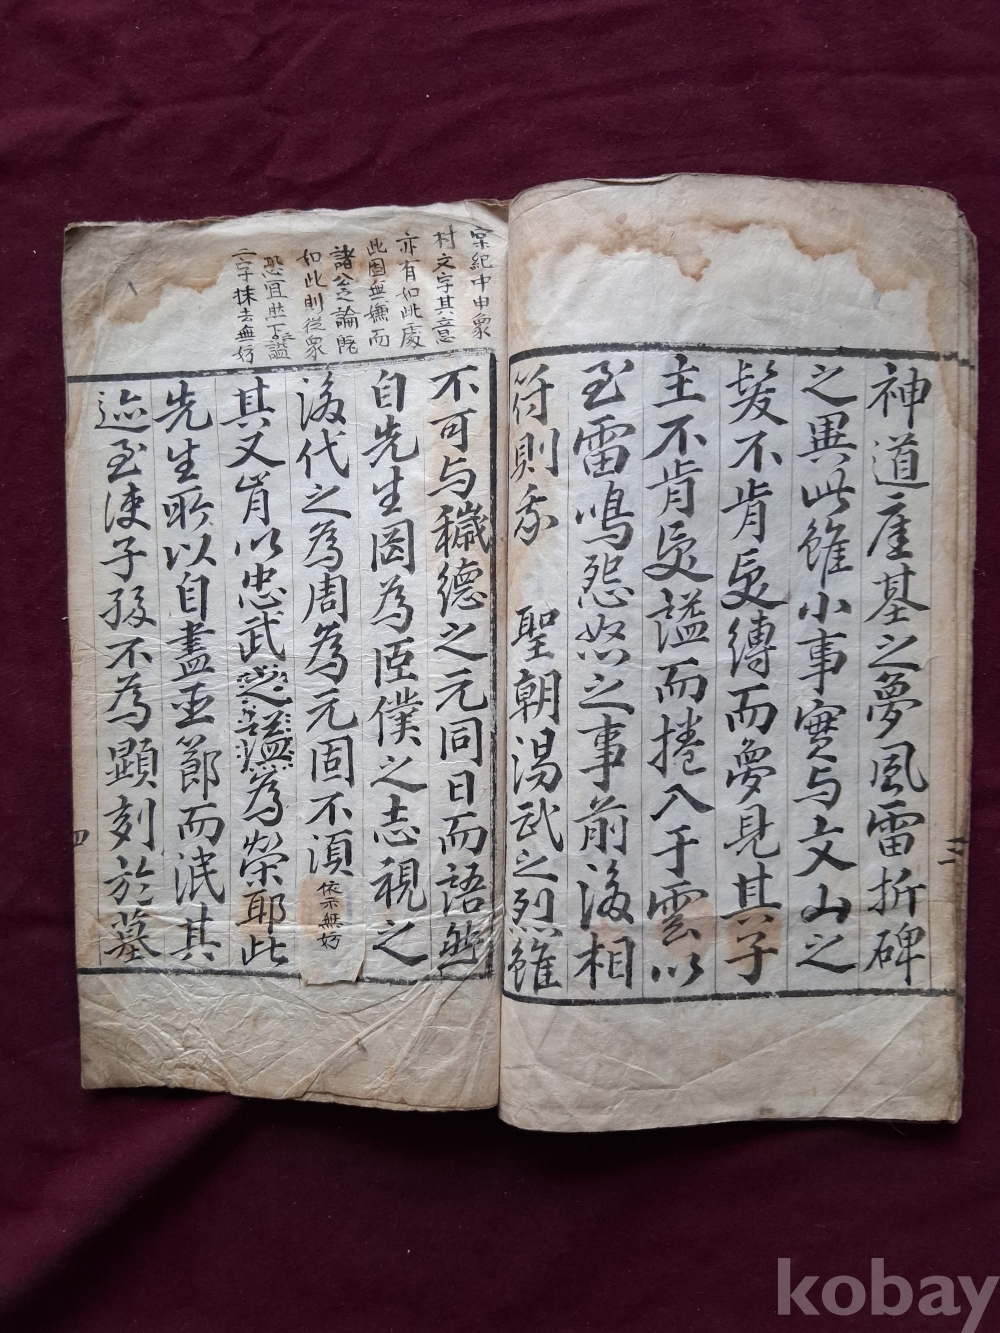 神道虗基之夢風雷折碑
之異此雖小事實与文山之
髮不肯受縛而夢見其子
主不肯受謚而捲入于雲以
至雷鳴怨怒之事前後相
符則我 聖朝湯武之烈雖
二
不可与穢德之元同日而語然
自先生罔為臣僕之志視之
後代之為周為元固不須
依示無妨
其又肯以忠武之謚為榮耶此
先生所以自盡亚節而泯其
迹至使子孫不為顯刻於墓
四
家紀中申象
村文字其意
亦有如此處
此固無嫌而
諸公之論既
如此則從衆
恐宜然下謚
二字抹去無妨
kobay